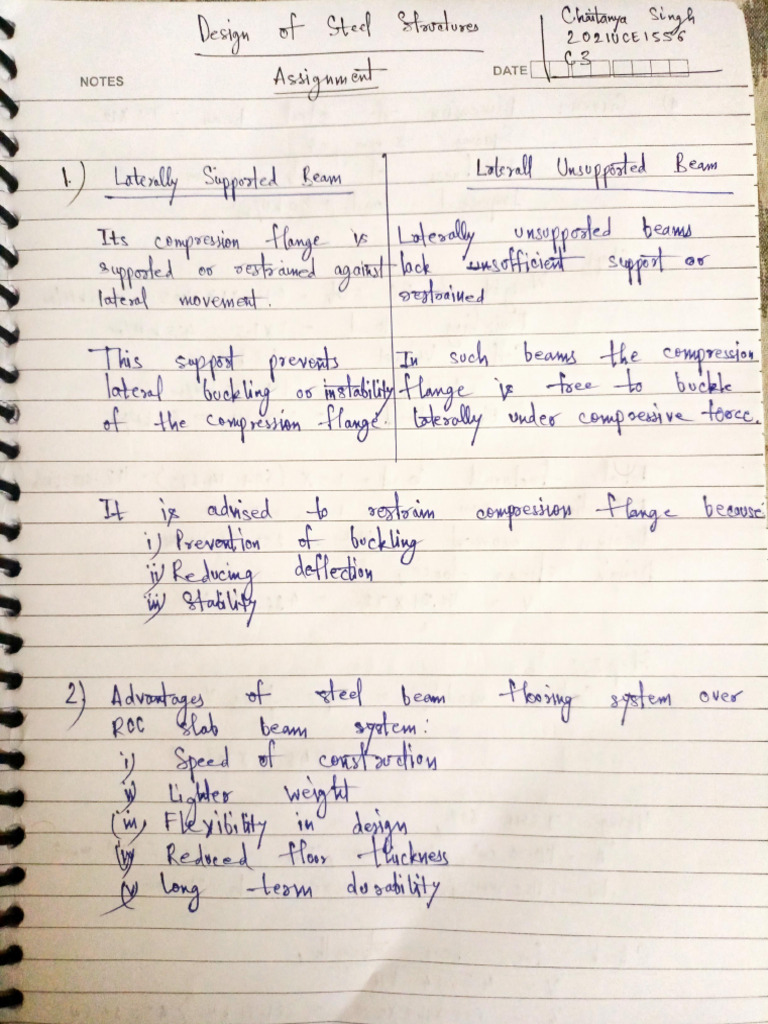 Design of Steel Structures
Chaitanya Singh
2021UCE1556
C3
NOTES
Assignment
DATE
1.) Laterally Supported Beam
Laterall Unsupported Beam
Its compression flange is
supported or restrained against
lateral movement.
Laterally unsupported beams
lack unsofficient support or
restrained
This support prevents
lateral buckling or instability
of the compression flange.
In such beams the compression
flange is free to buckle
laterally under compressive force.
It is advised to restrain compression flange because
i) Prevention of buckling
ii) Reducing deflection
iii) Stability
2) Advantages of steel beam flooring system over
RCC slab beam system:
i) Speed of construction
ii) Lighter weight
(iii) Flexibility in design
(iv) Reduced floor thickness
(v) Long-term durability